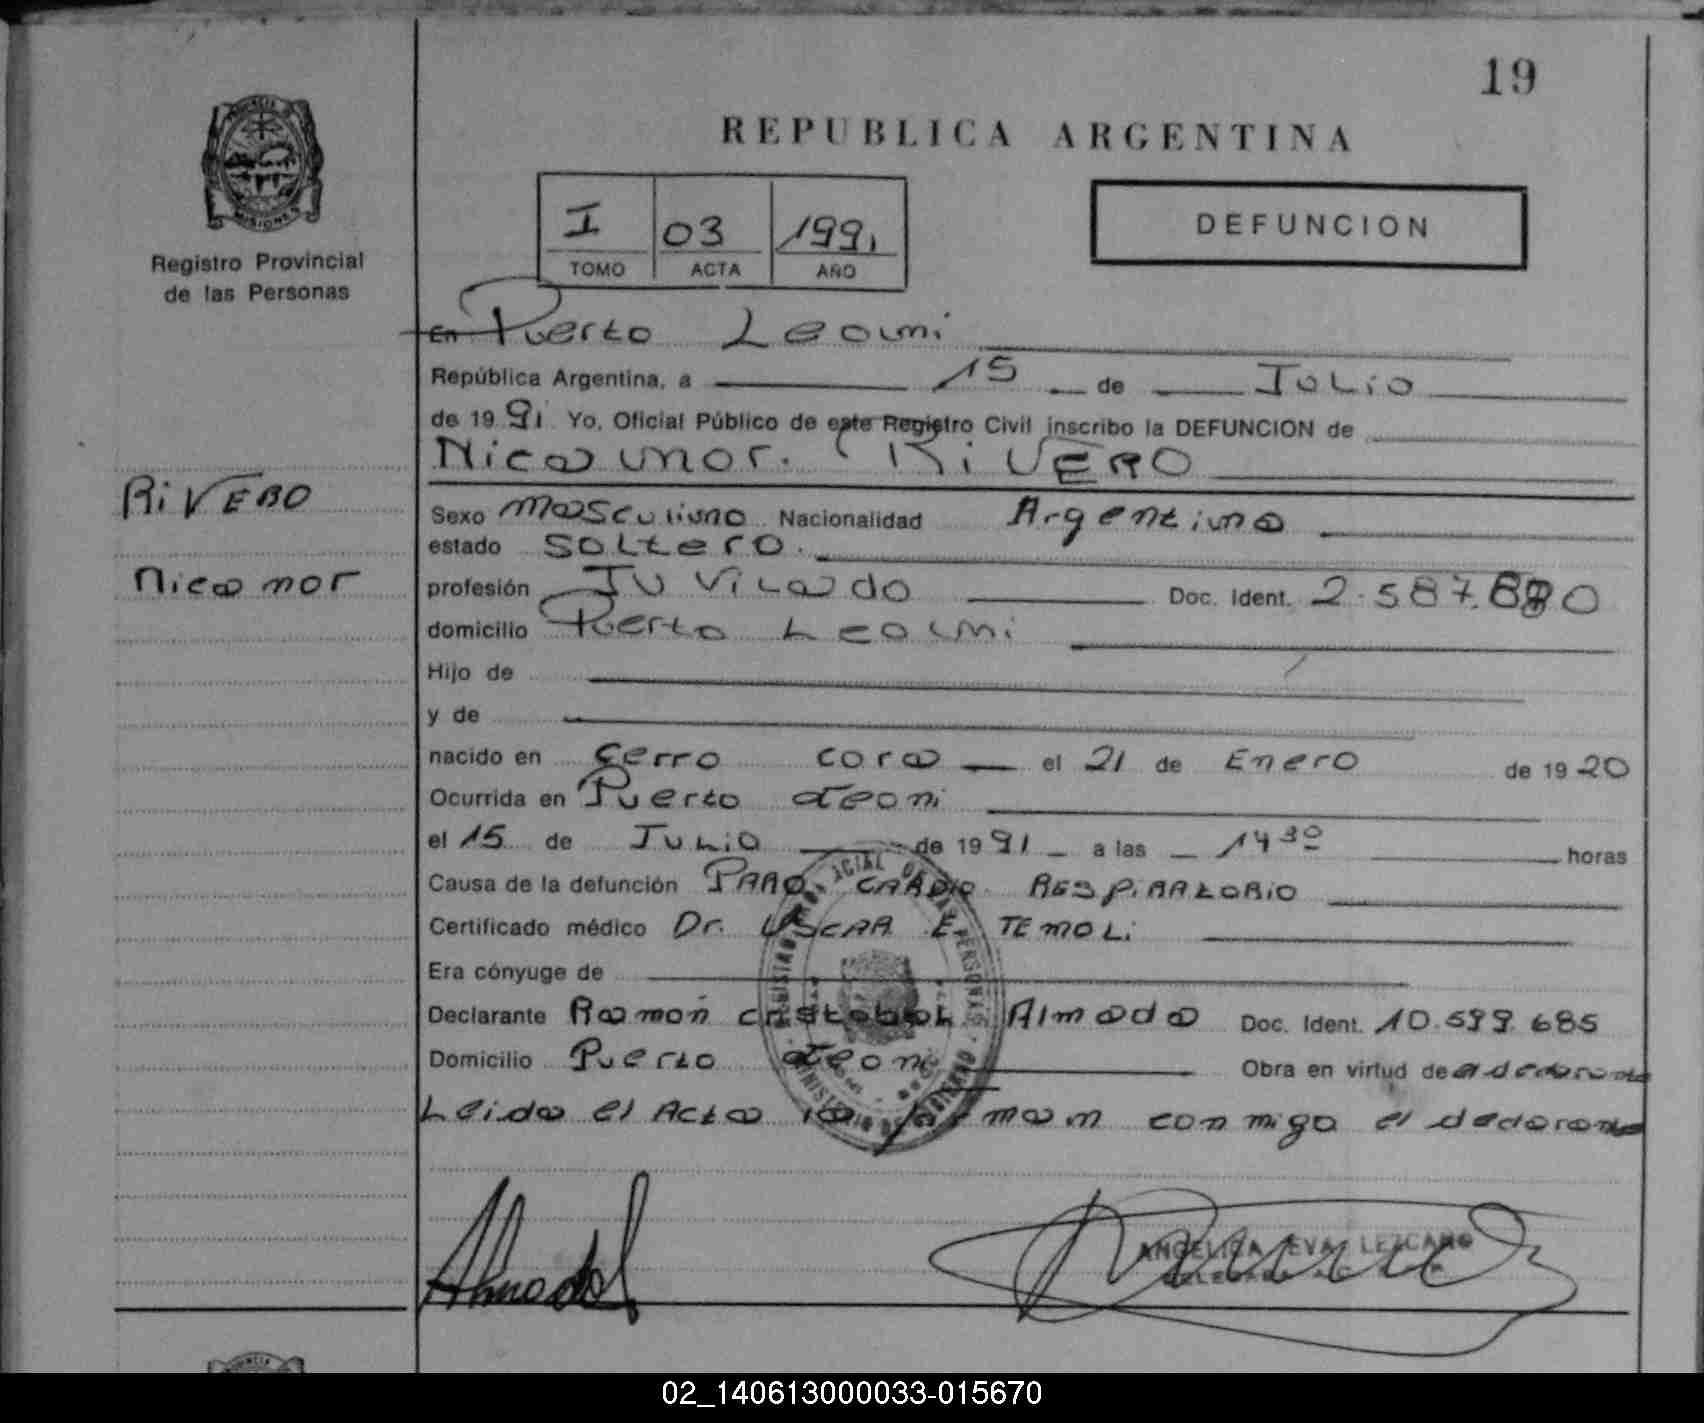 19
REPUBLICA ARGENTINA
I 03 1991
TOMO ACTA AÑO
DEFUNCION
MISIONES
Registro Provincial
de las Personas
En Puerto Leoni
República Argentina, a 15 de Julio
de 1991 Yo, Oficial Público de este Registro Civil inscribo la DEFUNCION de
Nicanor. RiVERO
RiVERO
Sexo Masculino Nacionalidad Argentina
estado Soltero.
Nicanor
profesión JuVilado Doc. Ident. 2.587.880
domicilio Puerto Leoni
Hijo de
y de
nacido en Cerro cora el 21 de Enero de 1920
Ocurrida en Puerto Leoni
el 15 de Julio de 1991 a las 14 30 horas
Causa de la defunción PARO CARDIO RESPiRATORIO
Certificado médico Dr. OSCAR E. TEMOLi
Era cónyuge de
Declarante Ramón cristobal Almada Doc. Ident. 10.599.685
Domicilio Puerto Leoni Obra en virtud de
Leida el Acta la firman conmigo el declarante
Almada
ANGELICA EVA LEZCANO
02_140613000033-015670